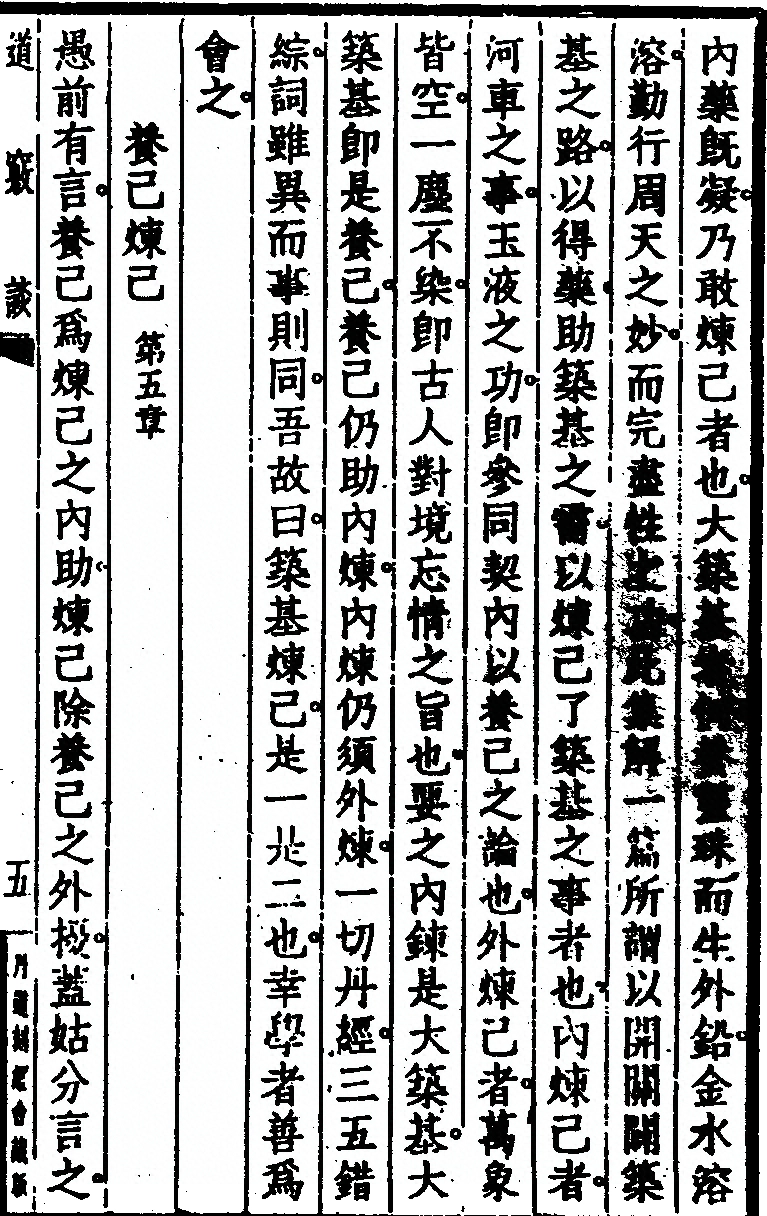 內藥既凝乃敢煉己者也大築基者何養靈珠而生外鉛金水溶
溶勤行周天之妙而完盡性之功此集解一篇所謂以開關開築
基之路以得藥助築基之需以煉己了築基之事者也內煉己者
河車之事玉液之功卽參同契內以養己之論也外煉己者萬象
皆空一塵不染卽古人對境忘情之旨也要之內鍊是大築基大
築基卽是養己養己仍助內煉內煉仍須外煉一切丹經三五錯
綜詞雖異而事則同吾故曰築基煉己是一是二也幸學者善爲
會之
養己煉己 第五章
愚前有言養己爲煉己之內助煉己除養己之外擾蓋姑分言之
道竅談 五 丹道刻經會藏版